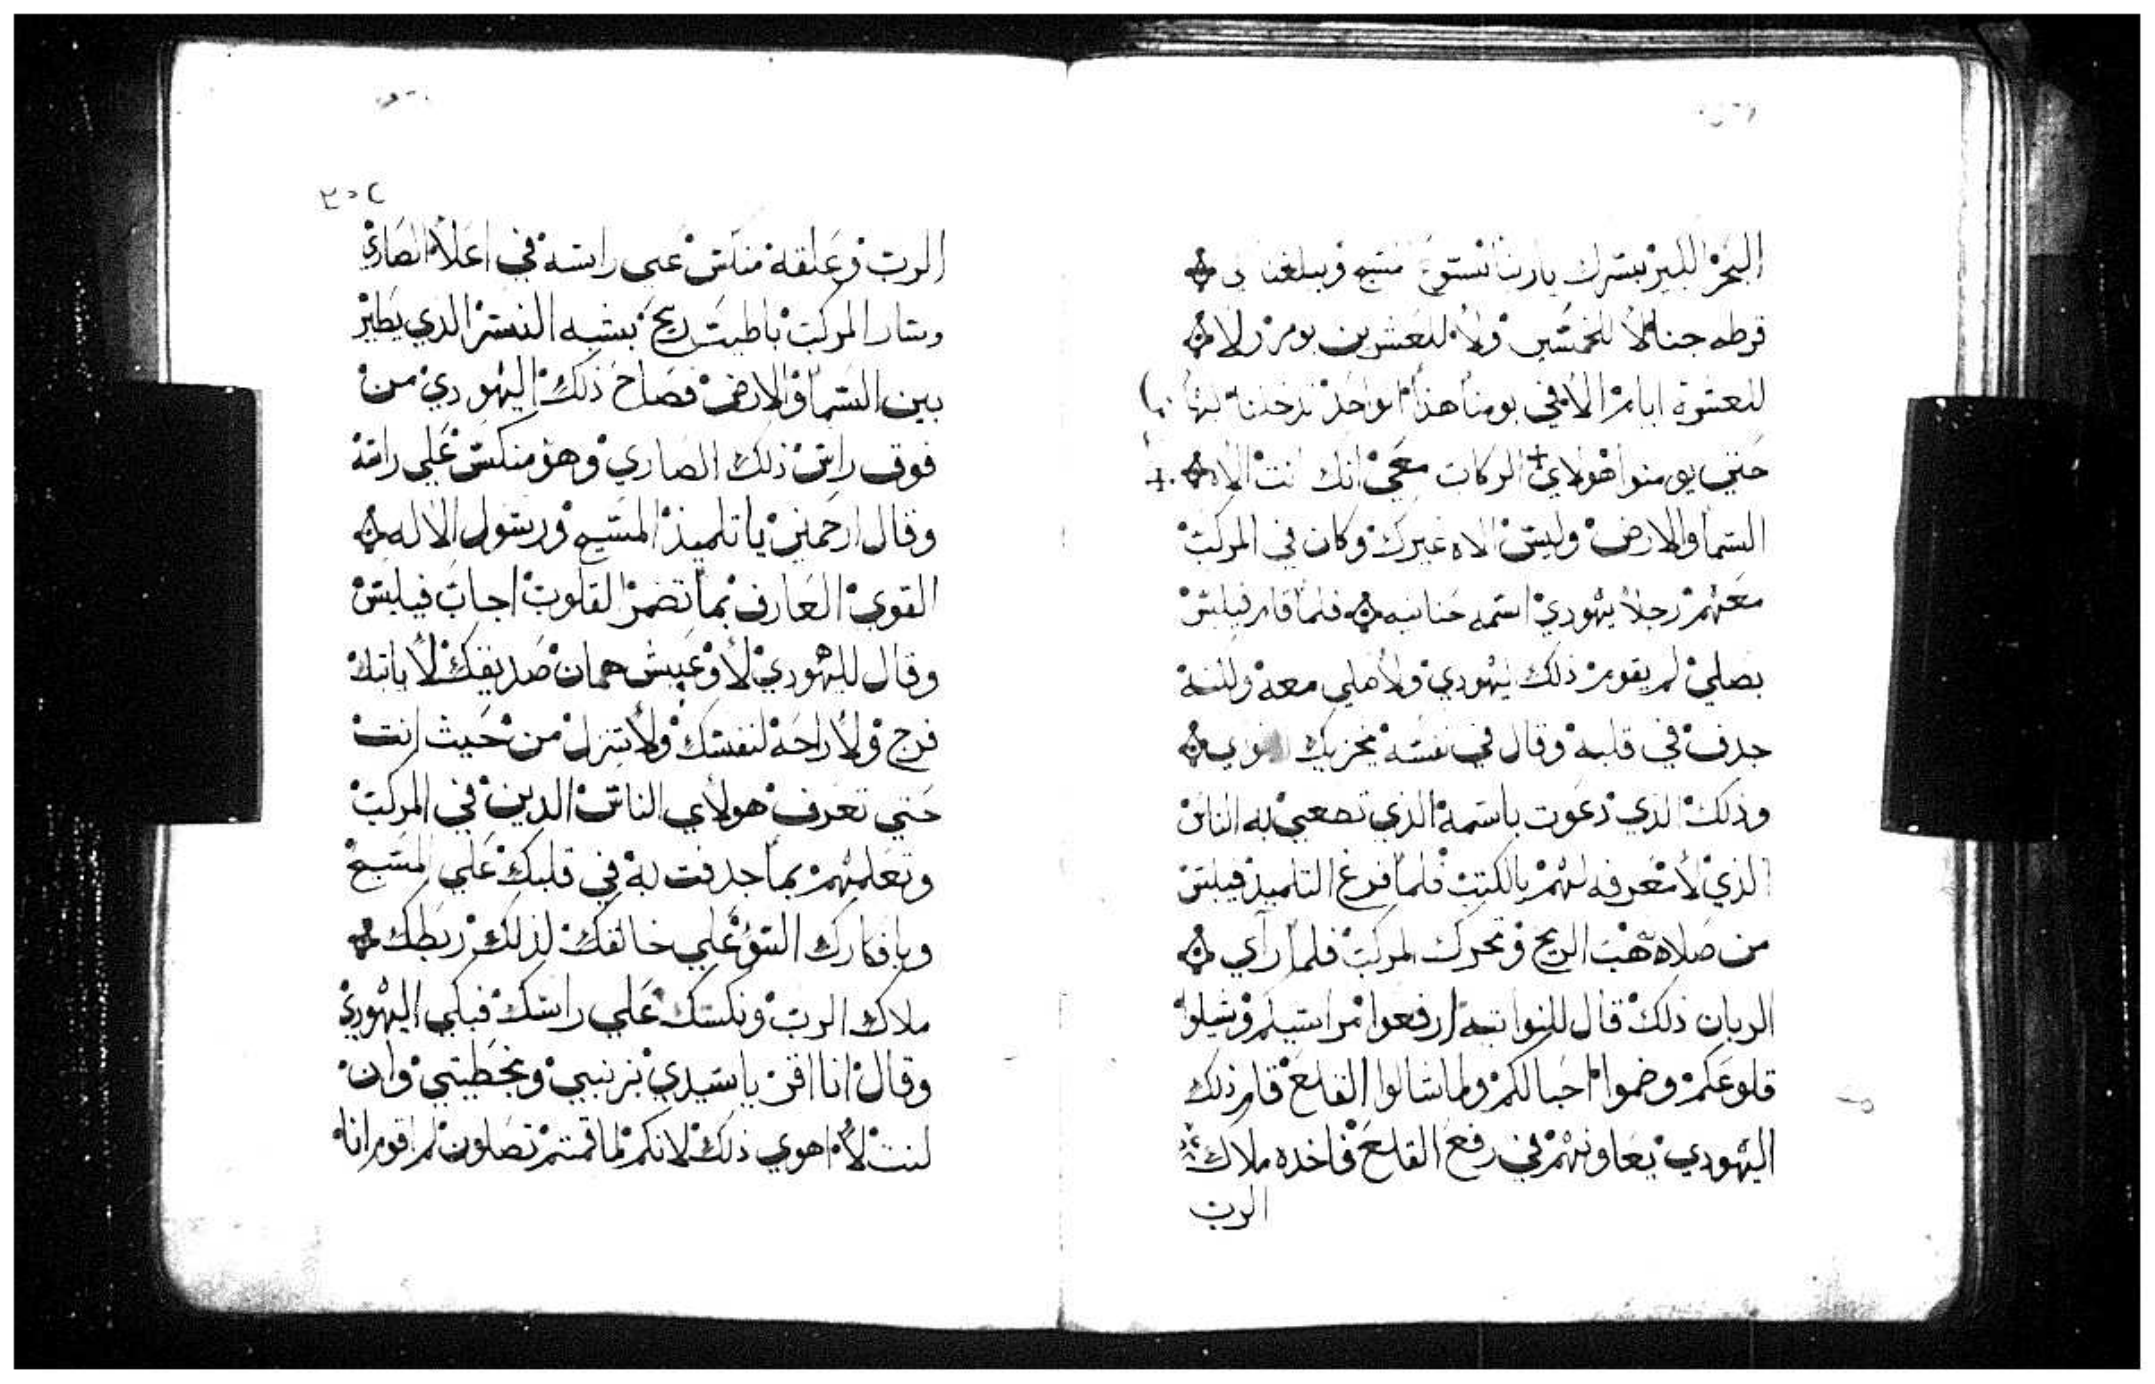 البحر الكبير نيسرك يا ربنا نستوي مسبح ويبلغنا الى
قرطه جنا لا للخمسين ولا للعشرين يوم ولا
للعشرة ايام الا في يومنا هذا الواحد تدخلنا لها
حتي يومنوا هولاي الركاب معي انك انت الاه
السما والارض وليس الاه غيرك وكان في المركب
معهم رجلا يهودي اسمه حنانيه فلما قام فيلبس
يصلي لم يقوم ذلك اليهودي ولا صلي معه ولكنه
جدف في قلبه وقال في نفسه يخزيك
وذلك الذي دعوت باسمه الذي تصعي به الناس
الذي لا معرفه لهم بالكتب فلما فرغ التلميذ فيلبس
من صلاته هبت الريح وتحرك المركب فلما رآي
الربان ذلك قال للنواتيه ارفعوا مراسيكم وشيلوا
قلوعكم وضموا احبالكم ولما شالوا القلع قام ذلك
اليهودي يعاونهم في رفع القلع فاخده ملاك
الرب
٢٥٢
الرب وعلقه منكس علي راسه في اعلا الصاري
وسار المركب باطيب ريح يشبه النسر الدي يطير
بين السما والارض فصاح ذلك اليهودي من
فوق راس ذلك الصاري وهو منكس علي راسه
وقال ارحمني يا تلميذ المسيح ورسول الاله
القوي العارف بما تضمر القلوب اجاب فيلبس
وقال لليهودي لا وعيش همان صديقك لا ياتيك
فرج ولا راحه لنفسك ولا تنزل من حيث انت
حتي تعرف هولاي الناس الدين في المركب
وتعلمهم بما جدفت به في قلبك علي المسيح
وبافكارك السوء علي خالقك لذلك ربطك
ملاك الرب ونكسك علي راسك فبكي اليهودي
وقال انا اقر يا سيدي بزنبي وبخطيتي وان
كنت لا اهوي ذلك لانكم لما قمتم تصلون لم اقوم انا